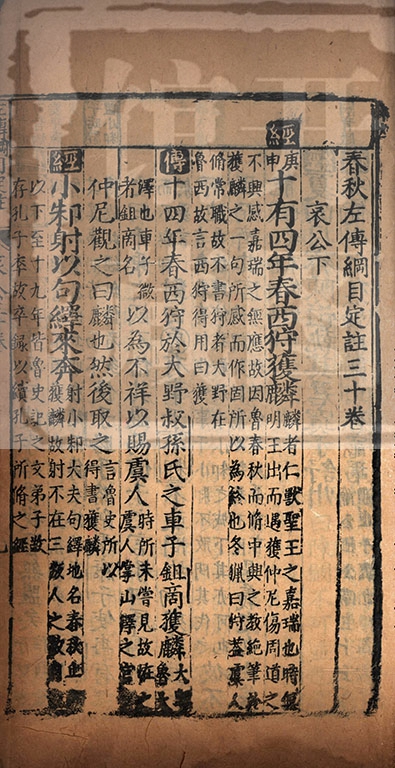 春秋左傳綱目定註三十卷
哀公下
經 庚申 十有四年春西狩獲麟 麟者仁獸聖王之嘉瑞也時無
明王出而遇獲仲尼傷周道之
不興感嘉瑞之無應故因魯春秋而脩中興之教絕筆於
獲麟之一句所感而作固所以為終也冬獵曰狩蓋虞人
脩常職故不書狩者大野在
魯西故言西狩得用曰獲
傳 十四年春西狩於大野叔孫氏之車子鉏商獲麟
澤也車子微
者鉏商名 以為不祥以賜虞人 時所未嘗見故怪之
虞人掌山澤之官
仲尼觀之曰麟也然後取之 言魯史所以
得書獲麟
經 小邾射以句繹來奔 射小邾大夫句繹地名春秋止
獲麟故射不在三叛人之數自
以下至十九年皆魯史記之文弟子欲
存孔子卒故卒錄以續孔子所脩之經